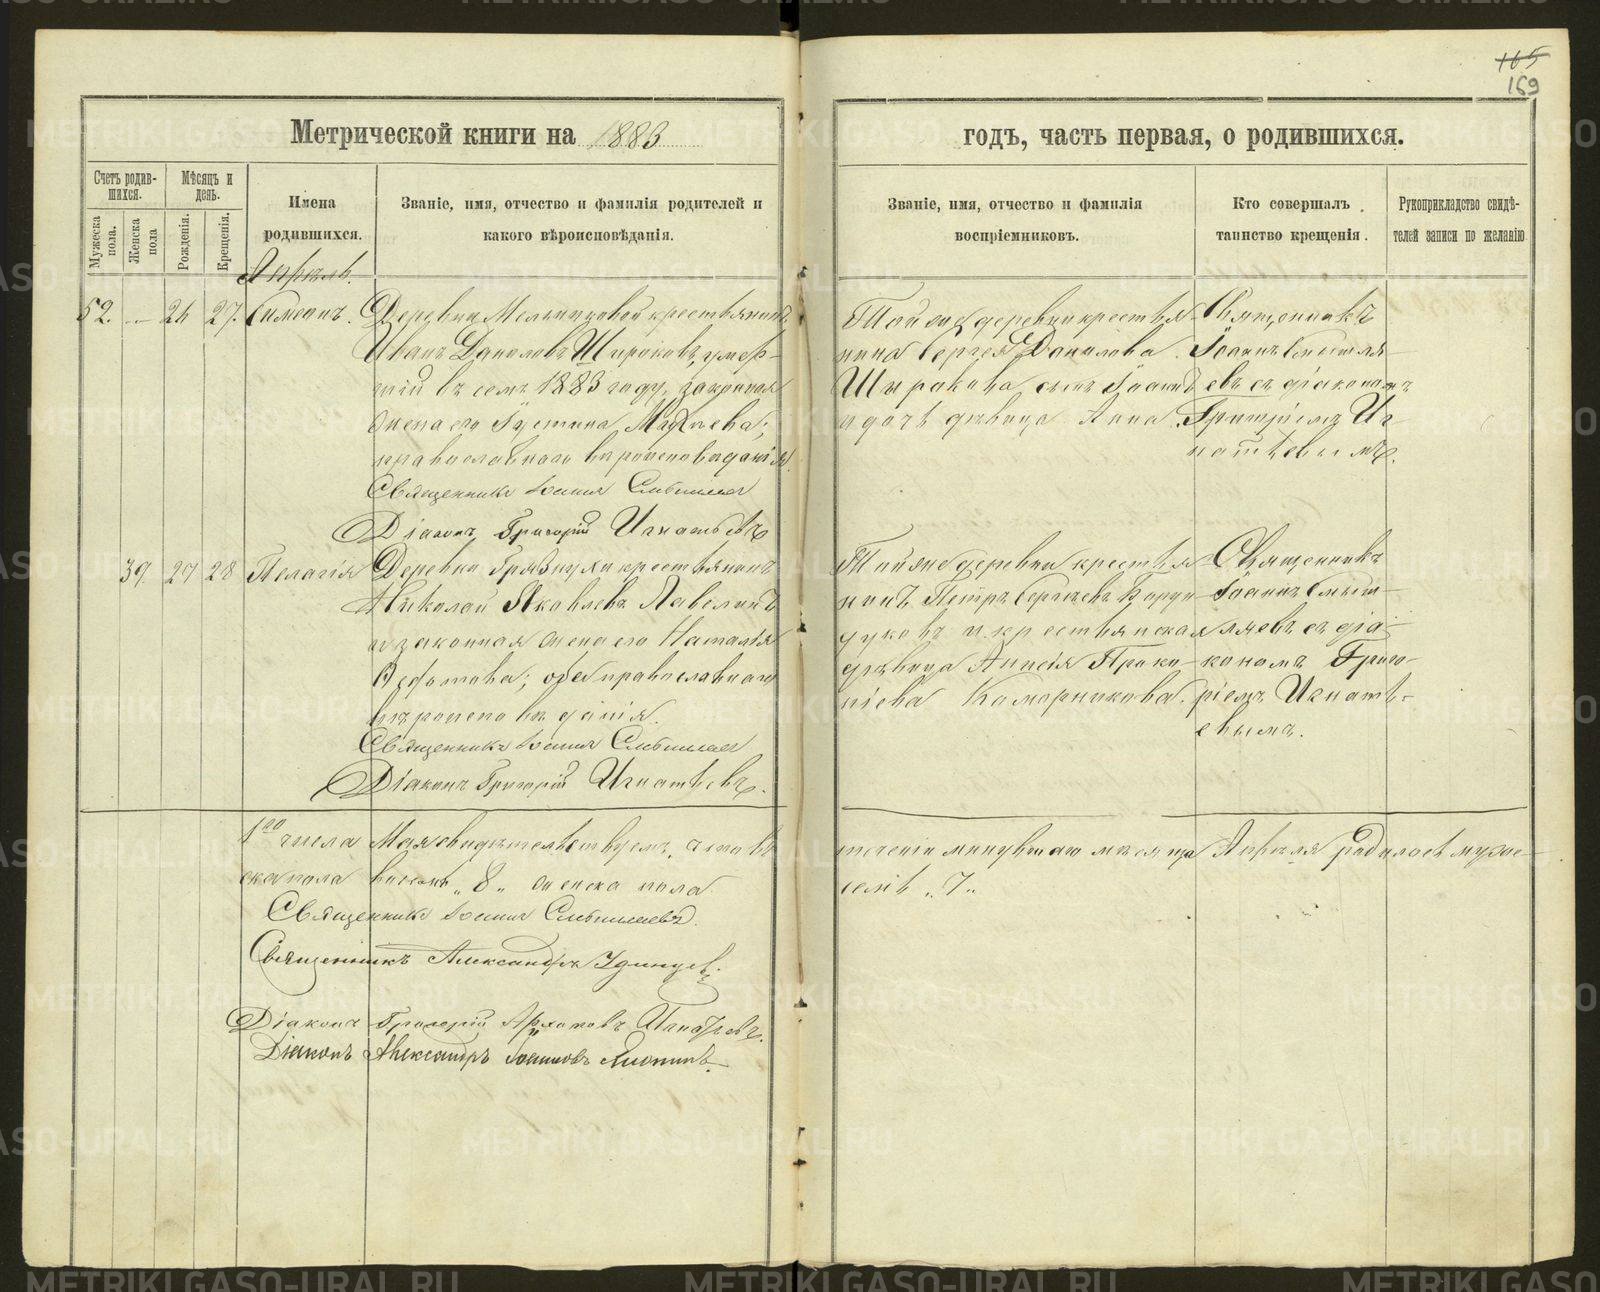 165
169
Метрической книги на 1883
годъ, часть первая, о родившихся.
Счетъ родив-
шихся.
Мѣсяцъ и
день.
Мужеска
пола.
Женска
пола
Рожденія.
Крещенія.
Имена
родившихся.
Званіе, имя, отчество и фамилія родителей и
какого вѣроисповѣданія.
Званіе, имя, отчество и фамилія
воспріемниковъ.
Кто совершалъ
таинство крещенія.
Рукоприкладство свидѣ-
телей записи по желанію
Апрѣль.
52. — 26 27. Симеонъ. Деревни Мельниковой крестьянинъ
Иванъ Даниловъ Широковъ, умер-
шій въ семъ 1883 году, законная
жена его Іустина
православнаго вѣроисповѣданія.
Священникъ Іоаннъ
Діаконъ Григорій Игнатьевъ
Той же деревни крестья-
нина Сергея Данилова
Широкова сынъ Іоаннъ
и дочь дѣвица Анна.
Священникъ
Іоаннъ
евъ съ діакономъ
Григоріемъ Иг-
натьевымъ.
39 27 28 Пелагія Деревни Грязнухи крестьянинъ
Николай Яковлевъ Павелинъ
и законная жена его Наталія
Ѳедотова; оба православнаго
вѣроисповѣданія.
Священникъ Іоаннъ
Діаконъ Григорій Игнатьевъ.
Той же деревни крестья-
нинъ Петръ Сергѣевъ
и крестьянская
дѣвица Анисія Проко-
піева Комарникова.
Священникъ
Іоаннъ
съ діа-
кономъ Григо-
ріемъ Игнатье-
евымъ.
1го числа Мая свидѣтельствуемъ, что въ
теченіи минувшаго мѣсяца Апрѣля родилось муже-
ска пола восемь „8„ женска пола
семь „7„
Священникъ Іоаннъ
Священникъ Александръ Удинцев.
Діаконъ Григорій Игнатьевъ.
Діаконъ Александръ Іоанновъ
METRIKI.GASO-URAL.RU